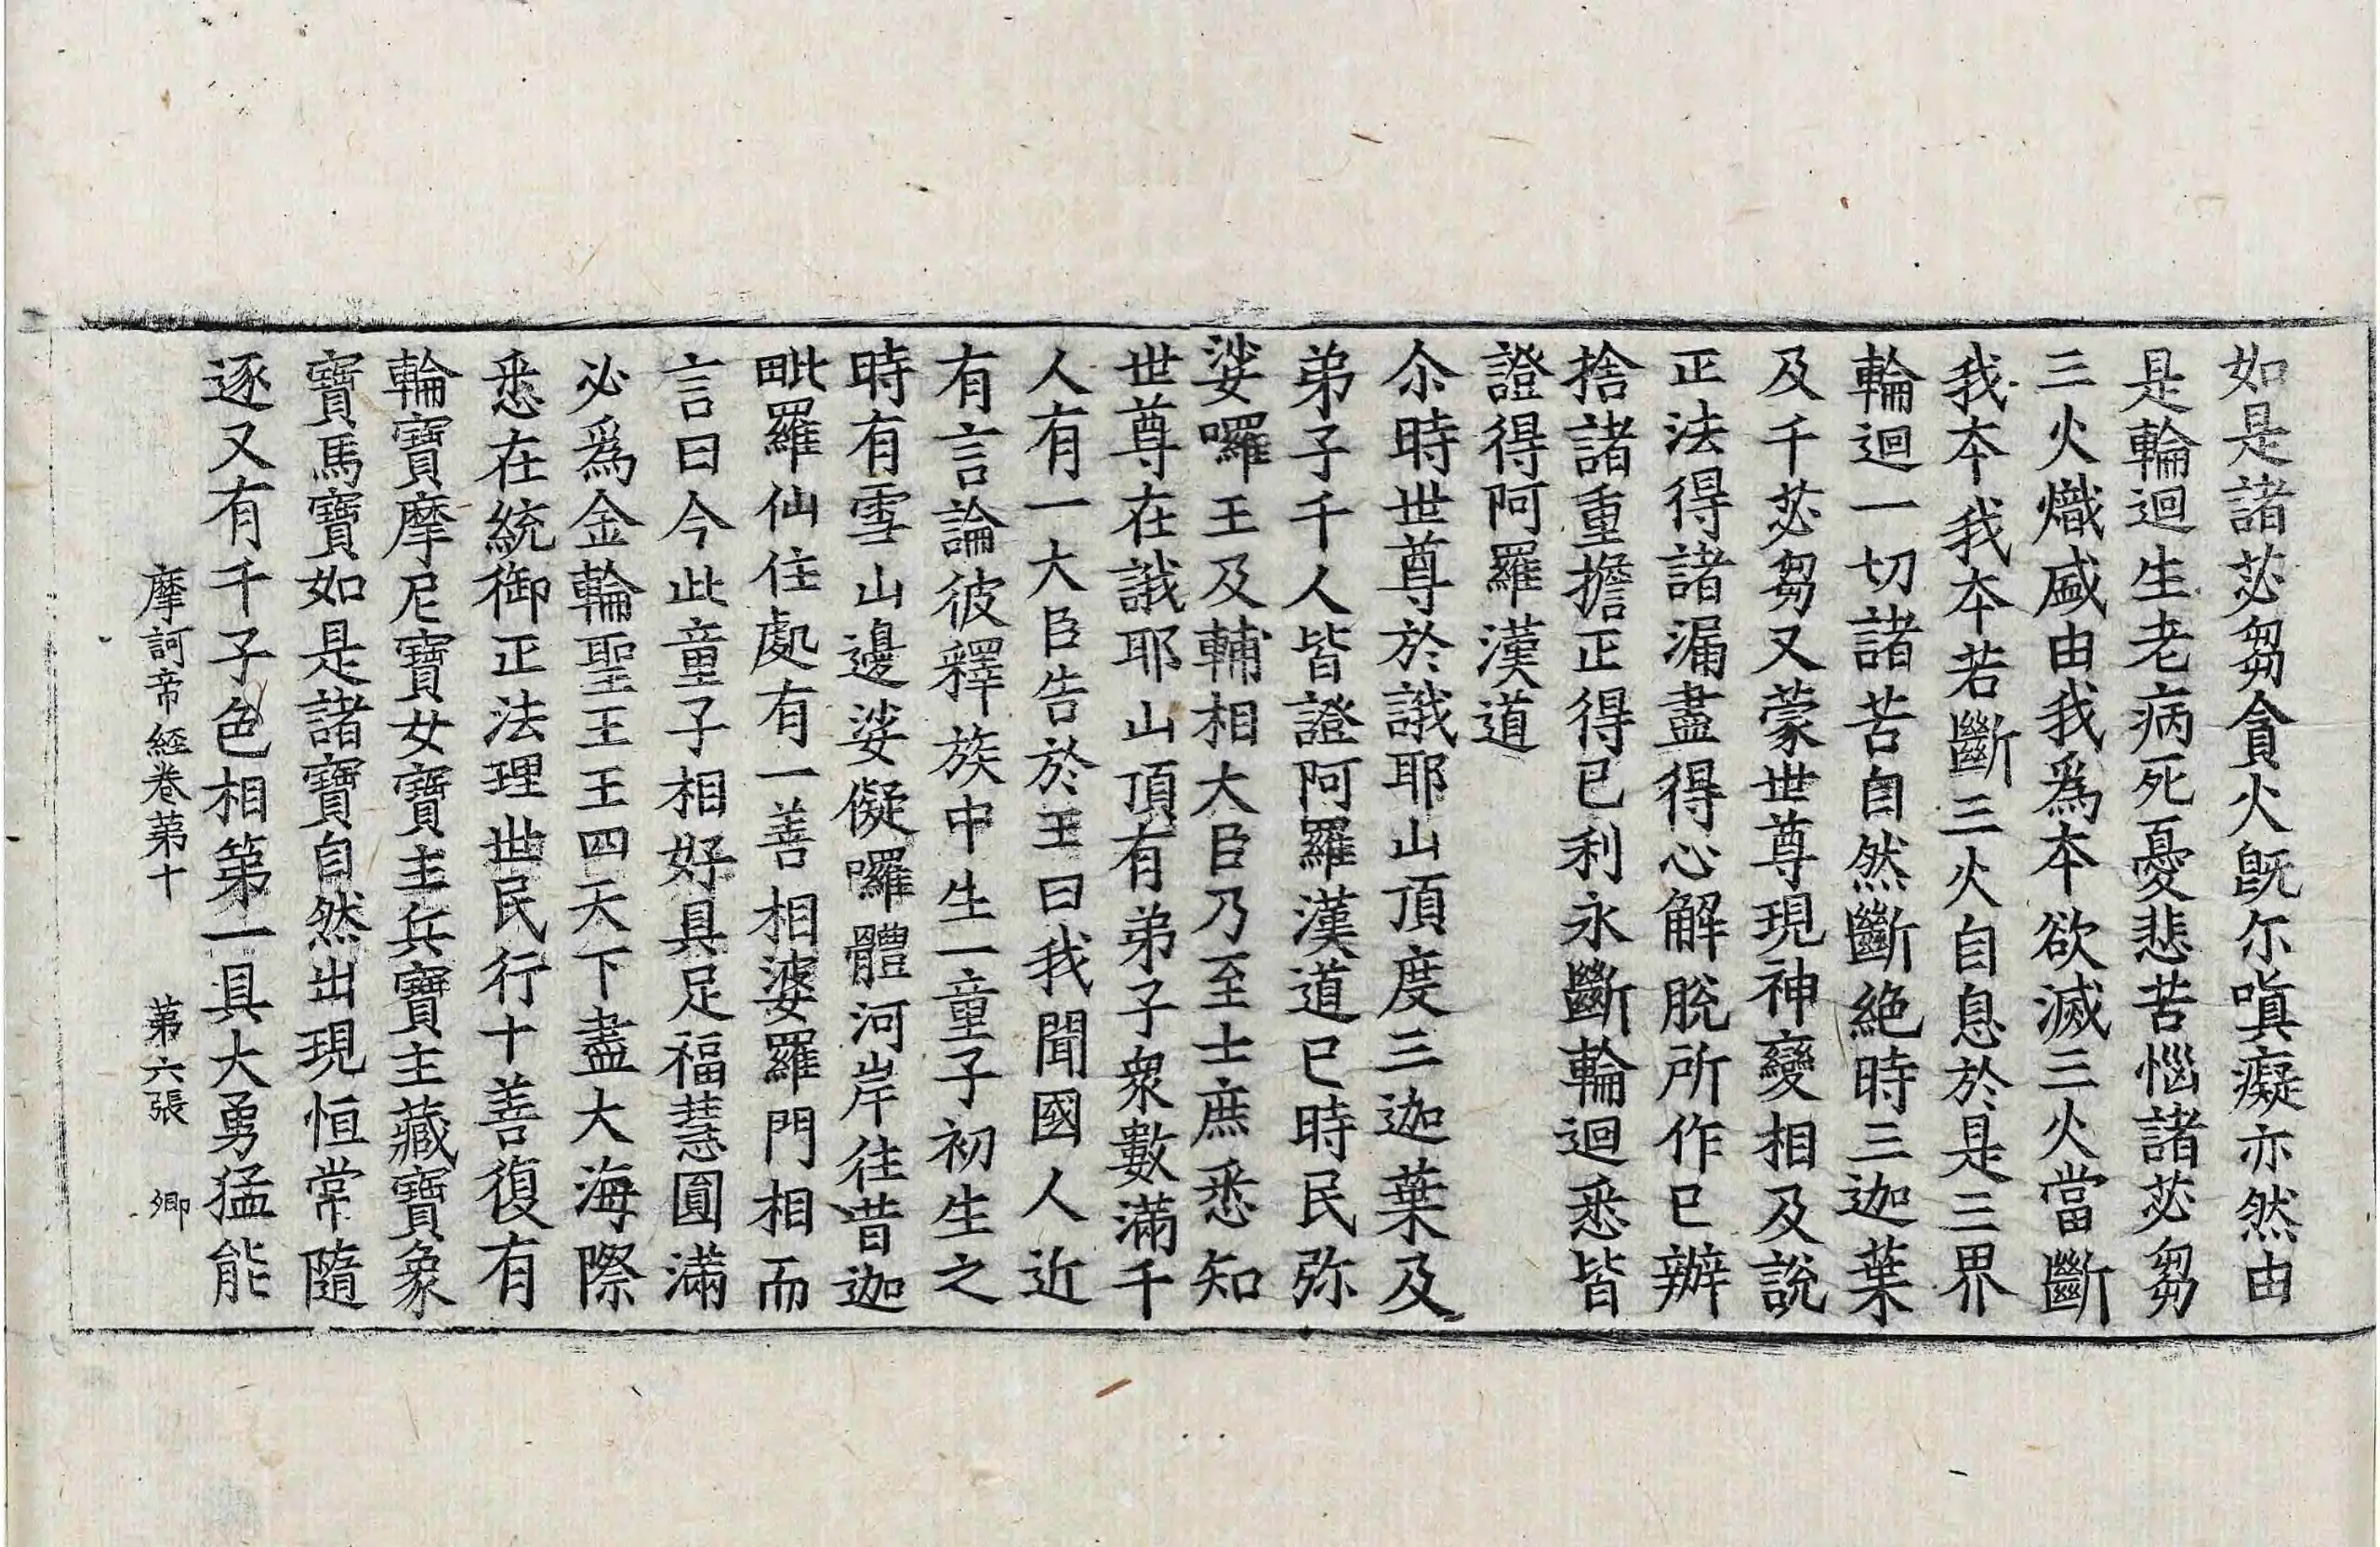 如是諸苾芻貪火旣尒嗔癡亦然由
是輪迴生老病死憂悲苦惱諸苾芻
三火熾盛由我爲本欲滅三火當斷
我本我本若斷三火自息於是三界
輪迴一切諸苦自然斷絕時三迦葉
及千苾芻又蒙世尊現神變相及說
正法得諸漏盡得心解脫所作已辦
捨諸重擔正得已利永斷輪迴悉皆
證得阿羅漢道
尒時世尊於誐耶山頂度三迦葉及
弟子千人皆證阿羅漢道已時民弥
娑囉王及輔相大臣乃至士庶悉知
世尊在誐耶山頂有弟子衆數滿千
人有一大臣告於王曰我聞國人近
有言論彼釋族中生一童子初生之
時有雪山邊娑儗囉體河岸往昔迦
毗羅仙住處有一善相婆羅門相而
言曰今此童子相好具足福慧圓滿
必爲金輪聖王王四天下盡大海際
悉在統御正法理世民行十善復有
輪寶摩尼寶女寶主兵寶主藏寶象
寶馬寶如是諸寶自然出現恒常隨
逐又有千子色相第一具大勇猛能
摩訶帝經卷第十 第六張 卿